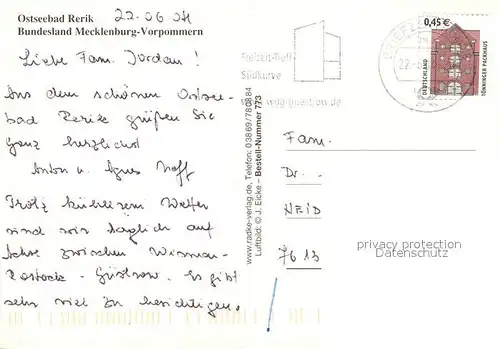 Ostseebad Rerik 22.06.04
Bundesland Mecklenburg-Vorpommern
Liebe Fam. Jordan!
Aus dem schönen Ostsee-
bad Rerik grüßen Sie
ganz herzlichst
Anton u. Agnes
Trotz kühlerem Wetter
sind wir täglich auf
Achse zwischen Wismar-
Rostock - Güstrow. Es gibt
sehr viel zu besichtigen.
www.radke-verlag.de, Telefon: 03869/780884
Luftbild: © J. Eicke – Bestell-Nummer 773
Freizeit-Treff
Südkurve
0,45 €
DEUTSCHLAND
TÖNNINGER PACKHAUS
Fam.
Dr.
HEID
7613
privacy protection
Datenschutz